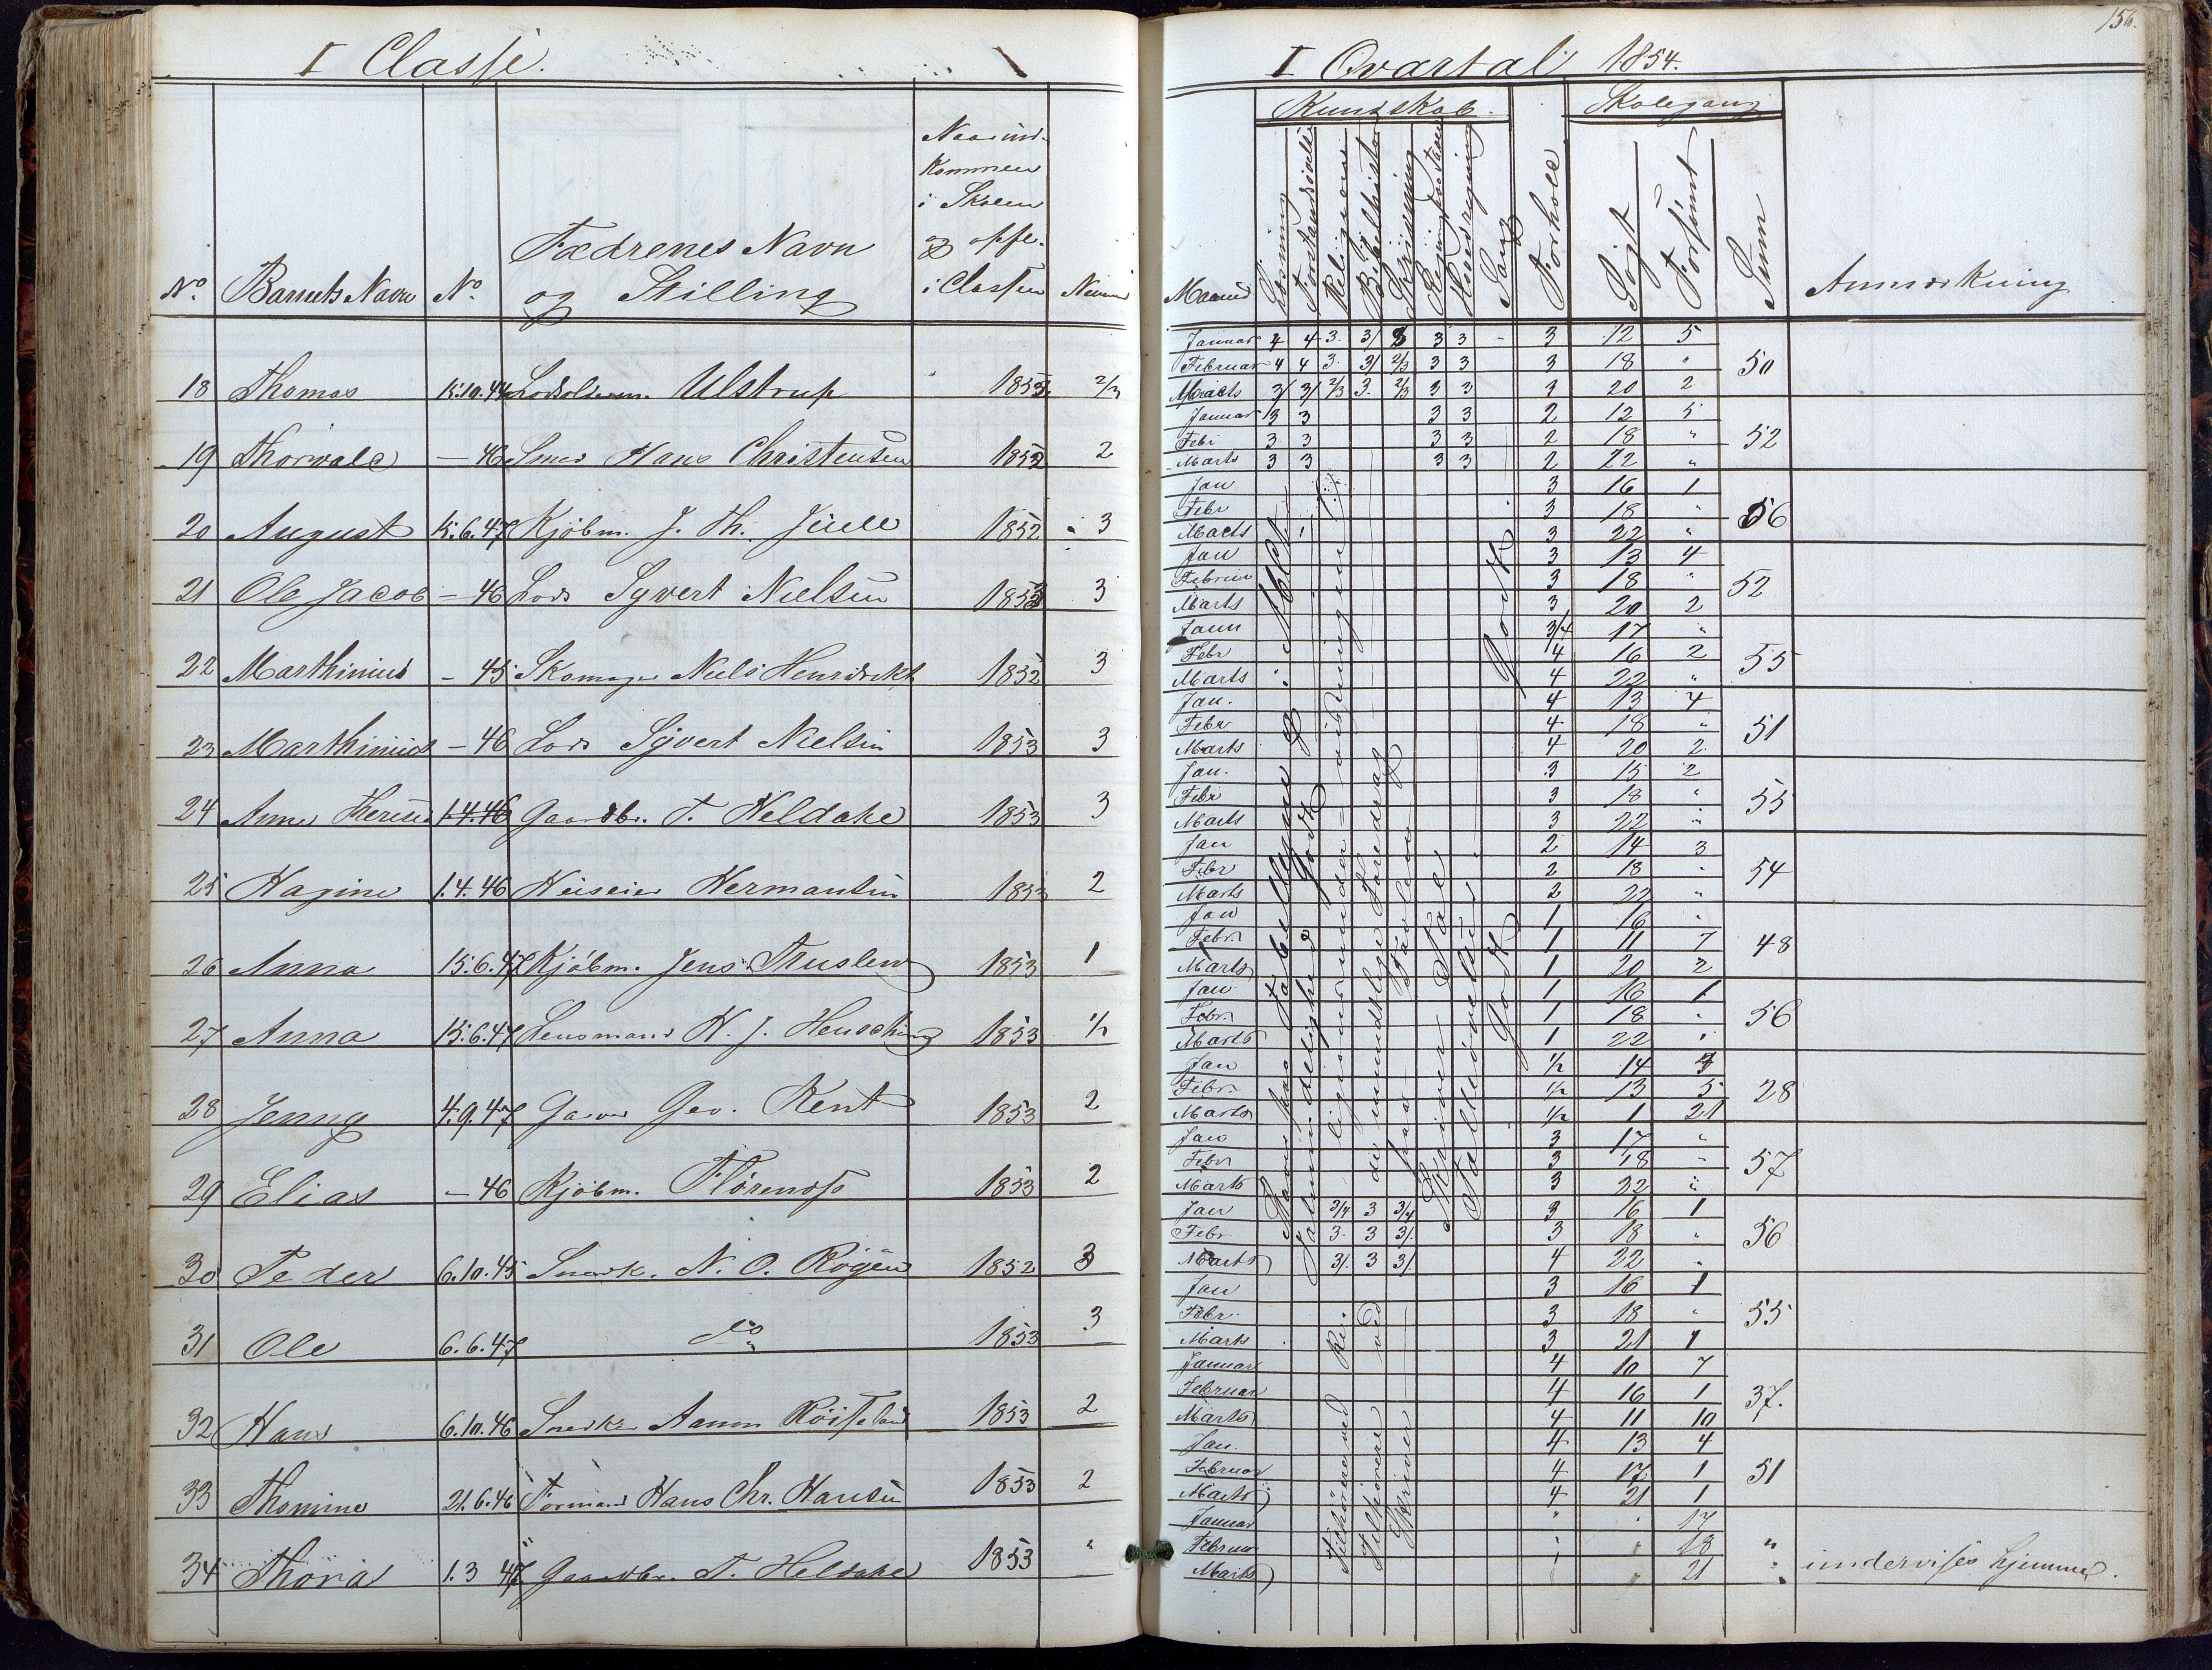 I Classe.
No. Barnets Navn No. Fædrenes Navn og Stilling Naar ind-kommen i Skolen og opfl. i Classen
18 Thomas 15.10.44 Ulstrup 1853 2/3
19 Thorvald — 46 Smed Hans Christensen 1852 2
20 August 15.6.47 Kjøbm. J. Th. Juell 1852 3
21 Ole Jacob — 46 Lods Syvert Nielsen 1853 3
22 Marthinius — 45 Skomager Niels 1852 3
23 Marthinius — 46 Lods Syvert Nielsen 1853 3
24 Anne 1.4.46 Gaardbr. T. Heldahe 1853 3
25 Hagine 1.4.46 Hermansen 1853 2
26 Anna 15.6.47 Kjøbm. Jens 1853 1
27 Anna 15.6.47 Lensmand H. J. 1853 1/2
28 Jenny 4.9.47 Garver Geo. Kent 1853 2
29 Elias — 46 Kjøbm. 1853 2
30 Peder 6.10.45 Snedk. N. O. 1852 3
31 Ole 6.6.47 do 1853 3
32 Hans 6.10.46 Snedker 1853 2
33 Thomine 21.6.46 Hans Chr. Hansen 1853 2
34 Thora 1.3 47 Gaardbr. T. Heldahe 1853 "
156.
I Qvartal 1854.
Kundskab. Skolegang
Maaned Læsning Forstandsøvelse Religion Bibelhistorie Skrivning Hovedregning Sang Forhold Søgt Forsømt Sum Anmærkning
Januar 4 4 3. 3/ 3 3 3 - 3 12 5
Februar 4 4 3. 3/ 2/3 3 3 3 18 " 50
Marts 3/ 3/ 2/3 3. 2/3 3 3 3 20 2
Januar 3 3 3 3 2 12 5
Febr 3 3 3 3 2 18 " 52
Marts 3 3 3 3 2 22 "
Jan 3 16 1
Febr 3 18 " 56
Marts 3 22 "
Jan 3 13 4
3 18 " 52
Marts 3 20 2
3/4 17 "
Febr 4 16 2 55
Marts 4 22 "
Jan. 4 13 4
Febr 4 18 " 51
Marts 4 20 2
Jan. 3 15 2
Febr 3 18 " 55
Marts 3 22 "
Jan 2 14 3
Febr 2 18 " 54
Marts 2 22 "
Jan 1 16 "
Febr. 1 11 7 48
Marts 1 20 2
Jan 1 16 1
Febr. 1 18 " 56
Marts 1 22 "
Jan 1/2 14 3
Febr. 1/2 13 5 28
Marts 1/2 1 21
Jan 3 17 "
Febr 3 18 " 57
Marts 3 22 "
Jan 3/4 3 3/4 3 16 1
Febr 3. 3 3/ 3 18 " 56
Marts 3/ 3 3/ 4 22 "
Jan 3 16 1
Febr. 3 18 " 55
Marts 3 21 1
Januar 4 10 7
Februar 4 16 1 37.
Marts 4 11 10
Jan. 4 13 4
Februar 4 17 1 51
Marts 4 21 1
Januar " " 17
Februar " " 18 "
Marts " " 21 " undervises hjemme.
Godt
Godt
Godt